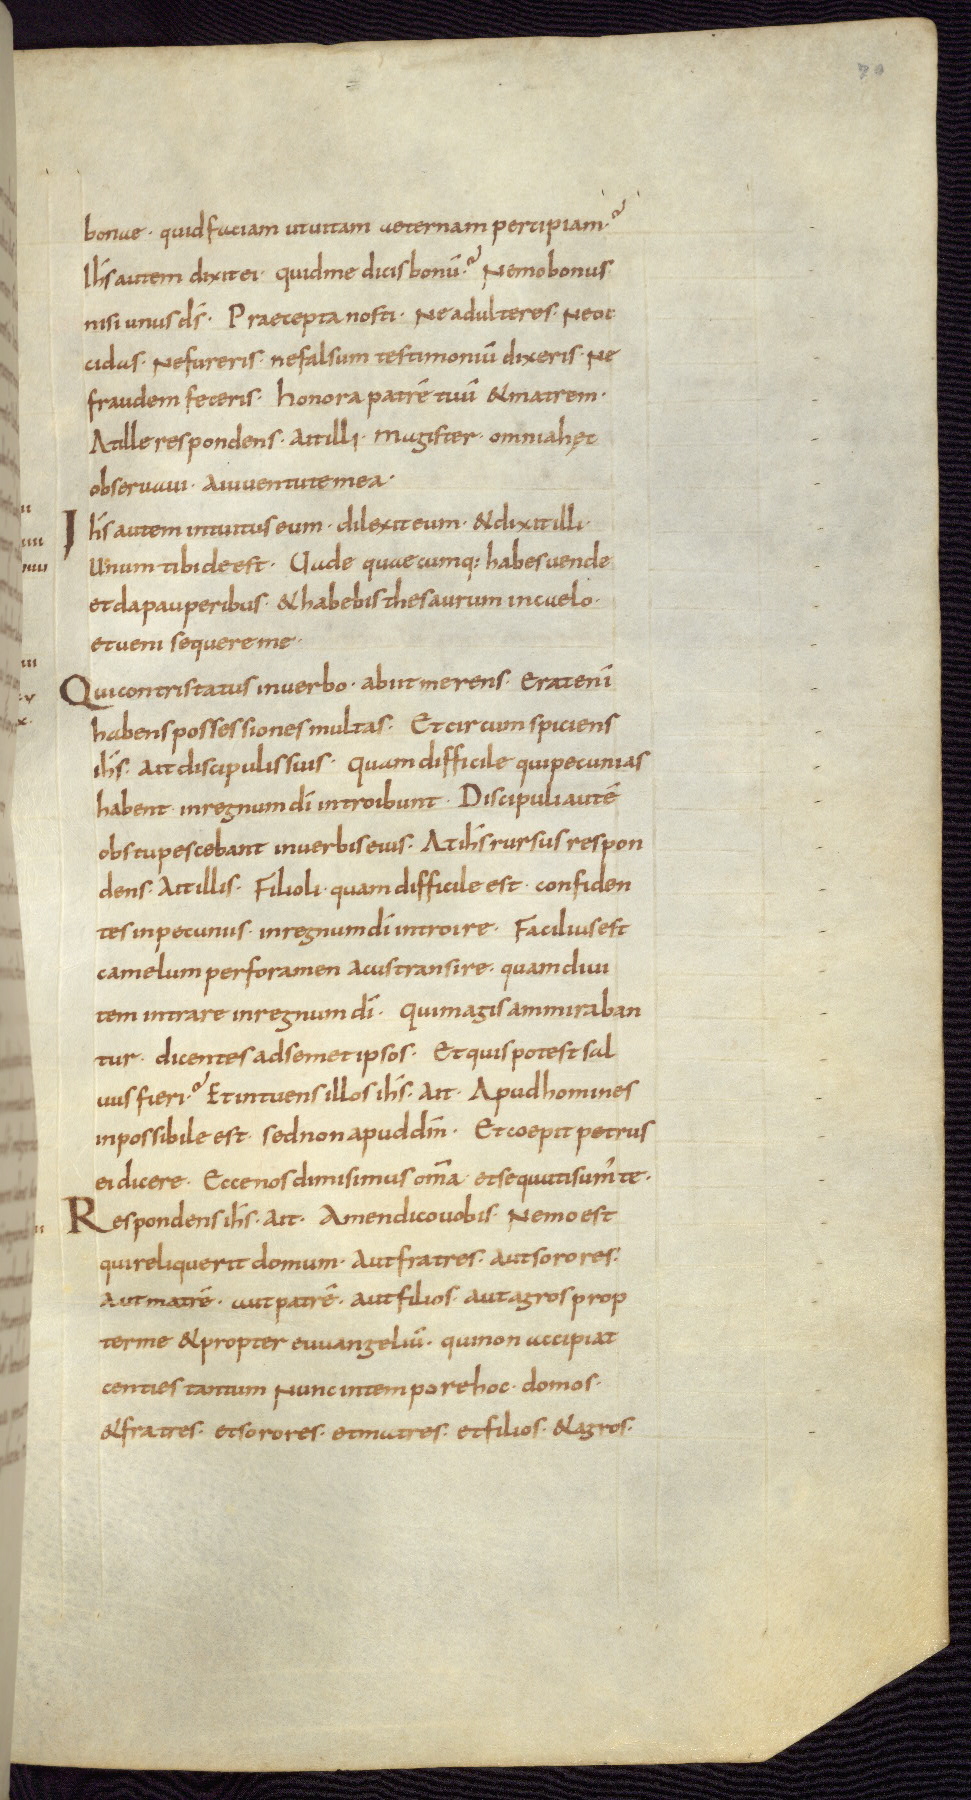 70
bonae · quid faciam ut uitam aeternam percipiam·?
Ihs̄ autem dixit ei · quid me dicis bonū·? Nemo bonus·
nisi unus ds̄ · Praecepta nosti · Ne adulteres · Ne oc
cidas · Ne fureris · ne falsum testimoniū dixeris · Ne
fraudem feceris · honora patrē tuū & matrem ·
At ille respondens · ait illi · magister · omnia hęc
obseruaui · a iuuentute mea ·
Ihs̄ autem intuitus eum · dilexit eum · & dixit illi ·
Unum tibi deest · Uade quaecumq: habes uende
et da pauperibus · & habebis thesaurum in caelo ·
et ueni sequere me ·
Qui contristatus in uerbo · abiit merens · Erat enī
habens possessiones multas · Et circumspiciens
ihs̄ · ait discipulis suis · quam difficile qui pecunias
habent · in regnum dī introibunt · Discipuli autē
obstupescebant in uerbis eius · At ihs̄ rursus respon
dens · Ait illis · Filioli · quam difficile est · confiden
tes in pecuniis · in regnum dī introire · Facilius est
camelum per foramen acus transire · quam diui
tem intrare in regnum dī · qui magis ammiraban
tur · dicentes ad semetipsos · Et quis potest sal
uus fieri·? Et intuens illos ihs̄ · Ait · Apud homines
inpossibile est · sed non apud dm̄ · Et coepit petrus
ei dicere · Ecce nos dimisimus om̄a et sequuti sum̄ te ·
Respondens ihs̄ · ait · Amen dico uobis · Nemo est
qui reliquerit domum · Aut fratres · Aut sorores ·
Aut matrē · aut patrē · aut filios · aut agros prop
ter me & propter euuangeliū · qui non accipiat
centies tantum nunc in tempore hoc · domos ·
& fratres · et sorores · et matres · et filios · & agros ·